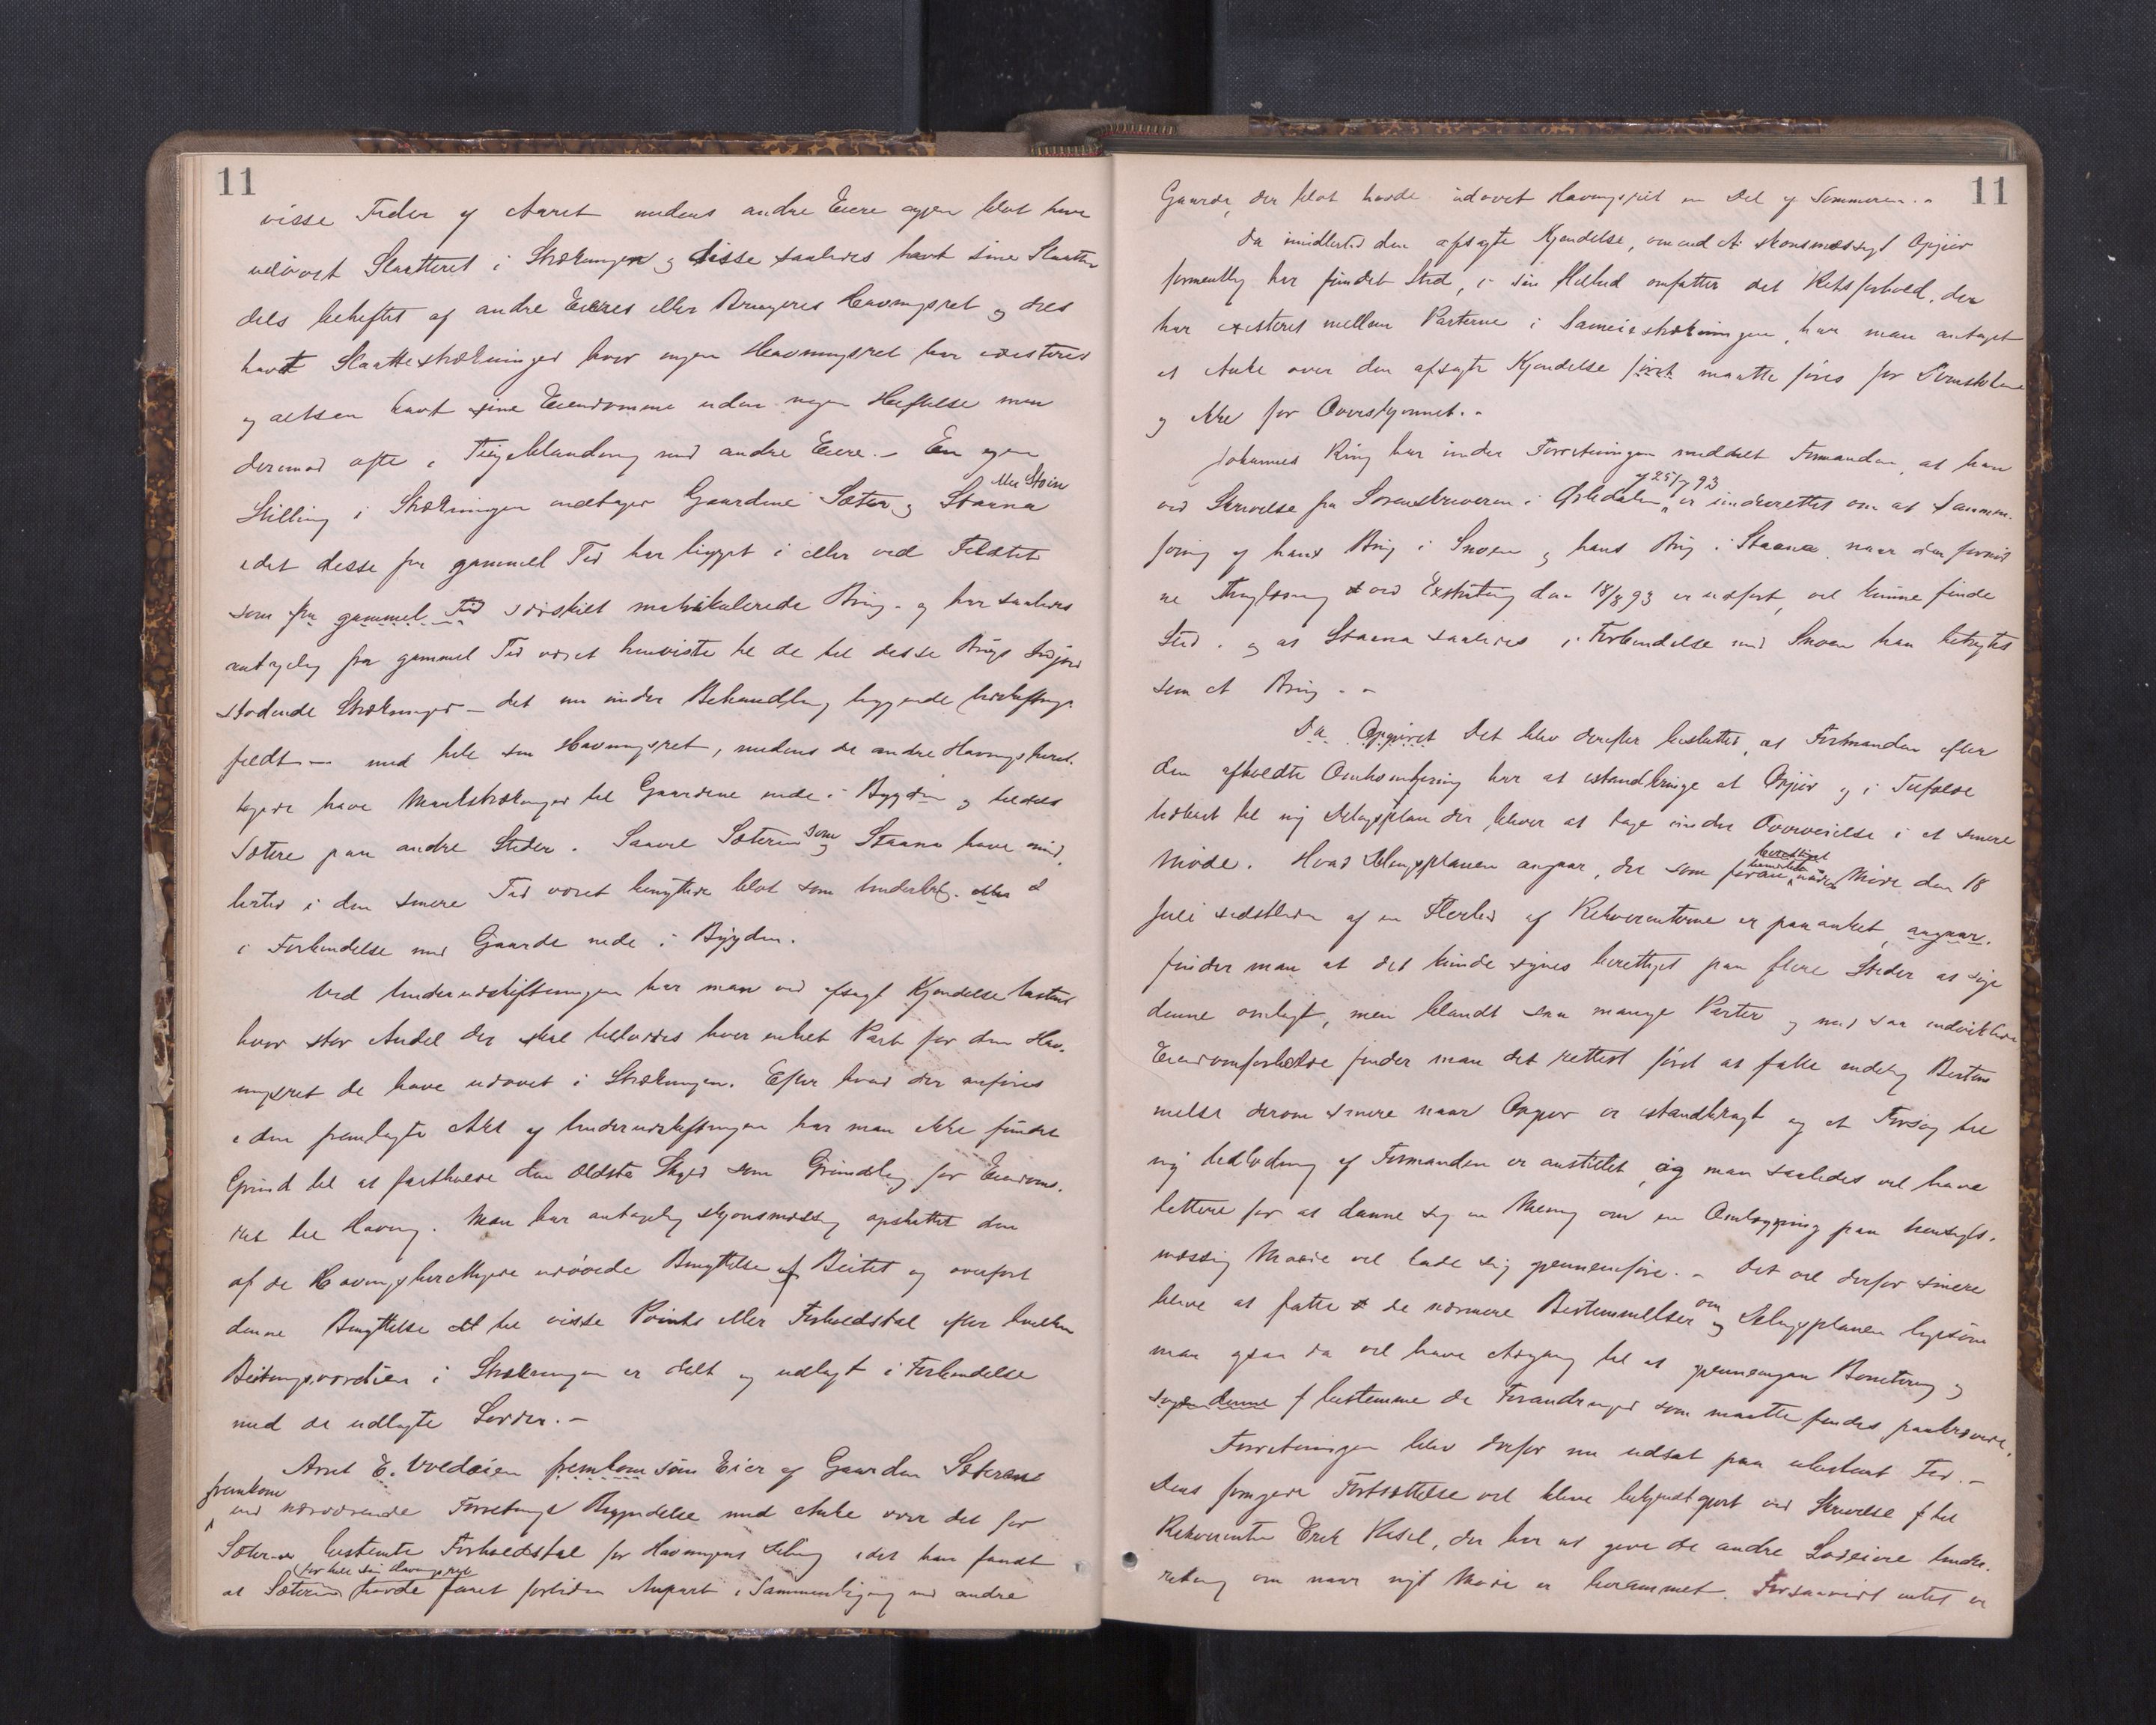 11
visse Tider af Aaret medens andre Eiere igjen blot have
udøvet Slaatteret i Strækningen og disse saaledes havt sine Slaatter
dels beheftet af andre Eieres eller Brugeres Havningsret og dels
havt Slaattestrækninger hvor ingen Havningsret har existeret
og altsaa havt sine Eiendomme uden nogen Heftelse men
derimod ofte i Teigeblanding med andre Eiere. – En egen
Stilling i Strækningen indtager Gaardene Sæter og Staana
eller Stoin
idet disse fra gammel Tid har ligget i eller ved Feltet
som fra gammel Tid særskilt matrikulerede Brug – og har saaledes
antagelig fra gammel Tid været henviste til de til disse Brugs Indjord
stødende Strækninger – det nu under Behandling liggende Udskiftnings-
feldt – med hele sin Havningsret, medens de andre Havningsberet-
tigede have Markstrækninger til Gaardene nede i Bygden og tildels
Sætere paa andre Steder. Saavel Sæteren som Staana have imid-
lertid i den senere Tid været benyttede blot som Underbrug
i Forbindelse med Gaarde nede i Bygden.
Ved Underudskiftningen har man ved afsagt Kjendelse bestemt
hvor stor Andel der skal tillægges hver enkelt Part for den Hav-
ningsret de have udøvet i Strækningen. Efter hvad der anføres
i den fremlagte Akt af Underudskiftningen har man ikke fundet
Grund til at fastholde den ældste Skyld som Grundlag for Eiendoms-
ret til Havning. Man har antagelig skjønsmæssig opskattet den
af de Havningsberettigede udøvede Benyttelse af Beitet og overført
denne Benyttelse til visse Points eller Forholdstal efter hvilken
Beitningsværdien i Strækningen er delt og udlagt i Forbindelse
med de udlagte Lodder. –
Arnt E. Voldøien fremkom som Eier af Gaarden Sæteren
fremkom
ved nærværende Forretnings Begyndelse med Anke over det for
Sæteren bestemte Forholdstal for Havningens Deling idet han fandt
for hele sin Havningsret
at Sæteren havde faaet forliden Anpart i Sammenligning med andre
11
Gaarde, der blot havde udøvet Havningsret en Del af Sommeren. –
Da imidlertid den afsagte Kjendelse, omend et skjønsmæssigt Opgjør
formentlig har fundet Sted, i sin Helhed omfatter det Retsforhold, der
har existeret mellem Parterne i Sameiestrækningen, har man antaget
at Anke over den afsagte Kjendelse først maatte føres for Domstolene
og ikke for Overskjønnet. –
Johannes Ring har under Forretningen meddelt Formanden, at han
af 25/7 93
ved Skrivelse fra Sorenskriveren i Østerdalen er underrettet om at Sammen-
føining af hans Brug i Snoen og hans Brug i Staana, naar den fornød-
ne Thinglæsning ved Extrating den 18/8 93 er udført, vil kunne finde
Sted, og at Staana saaledes i Forbindelse med Snoen kan betragtes
som et Brug. –
Da Opgjøret Det blev derefter besluttet, at Formanden efter
den afholdte Omkomfering har at istandbringe et Opgjør og i Tilfælde
Udkast til ny Delingsplan der bliver at tage under Overveielse i et senere
Møde. Hvad Delingsplanen angaar, der som foran Møde den 18
Juli sidstleden af en Flerhed af Rekvirenterne er paaanket, angaar.
finder man at det kunde synes berettiget paa flere Steder at søge
denne omlagt, men blandt saa mange Parter og med saa indviklede
Eiendomsforholde finder man det rettest først at fatte endelig Bestem-
melse derom senere naar Opgjør er istandbragt og et Forsøg til
ny Udlodning af Formanden er anstillet, og man saaledes vil have
lettere for at danne sig en Mening om en Omlægning paa hensigts-
mæssig Maade vil lade sig gjennemføre. – Det vil derfor senere
om
blive at fatte de nærmere Bestemmelser og Delingsplanen ligesom
man da vil have Adgang til at gjennemgaa Bonitering og
bestemme de Forandringer som maatte findes paakrævede.
Forretningen blev derfor nu udsat paa ubestemt Tid. –
Dens fornyede Fortsættelse vil blive bekjendtgjort ved Skrivelse til
Rekvirenten Erik Kisel, der har at give de andre Lodeiere Under-
retning om naar nyt Møde er berammet. Forsaavidt intet er